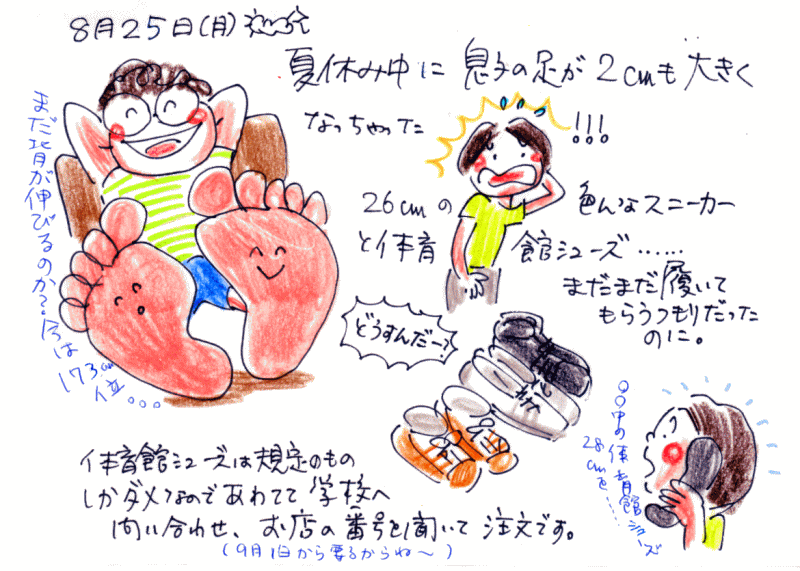 8月25日(月)
夏休み中に息子の足が2cmも大きく
なっちゃった!!!
まだ背が伸びるのか?今は
173cm位...
26cmの色んなスニーカー
と体育館シューズ......
まだまだ履いて
もらうつもりだった
のに。
どうすんだー?
○○中の体育館シューズ
28cmを.....
体育館シューズは規定のもの
しかダメなのであわてて学校へ
問い合わせ、お店の番号を聞いて注文です。
(9月1日から要るからね〜)